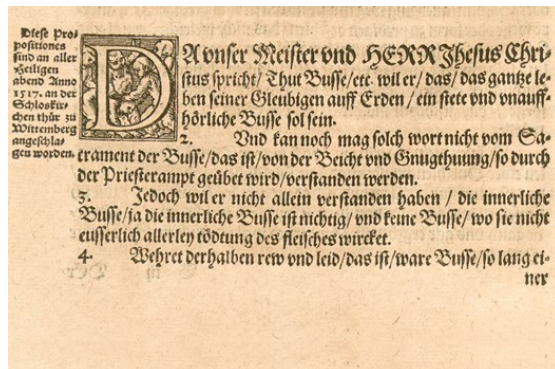 Diese Pro-
positiones
sind an aller
Heiligen
abend Anno
1517. an der
Schloskir-
chen thür zu
Wittemberg
angeschla-
gen worden.
DA vnser Meister vnd HERR Jhesus Chri-
stus spricht/ Thut Busse/etc. wil er/ das/ das gantze le-
ben seiner Gleubigen auff Erden/ ein stete vnd vnauff-
hörliche Busse sol sein.
2. Vnd kan noch mag solch wort nicht vom Sa-
crament der Busse/das ist/von der Beicht vnd Gnugthuung/so durch
der Priesterampt geübet wird/verstanden werden.
3. Jedoch wil er nicht allein verstanden haben / die innerliche
Busse/ja die innerliche Busse ist nichtig/ vnd keine Busse/ wo sie nicht
eusserlich allerley tödtung des fleisches wircket.
4. Wehret derhalben rew vnd leid/das ist/ware Busse/so lang ei-
ner